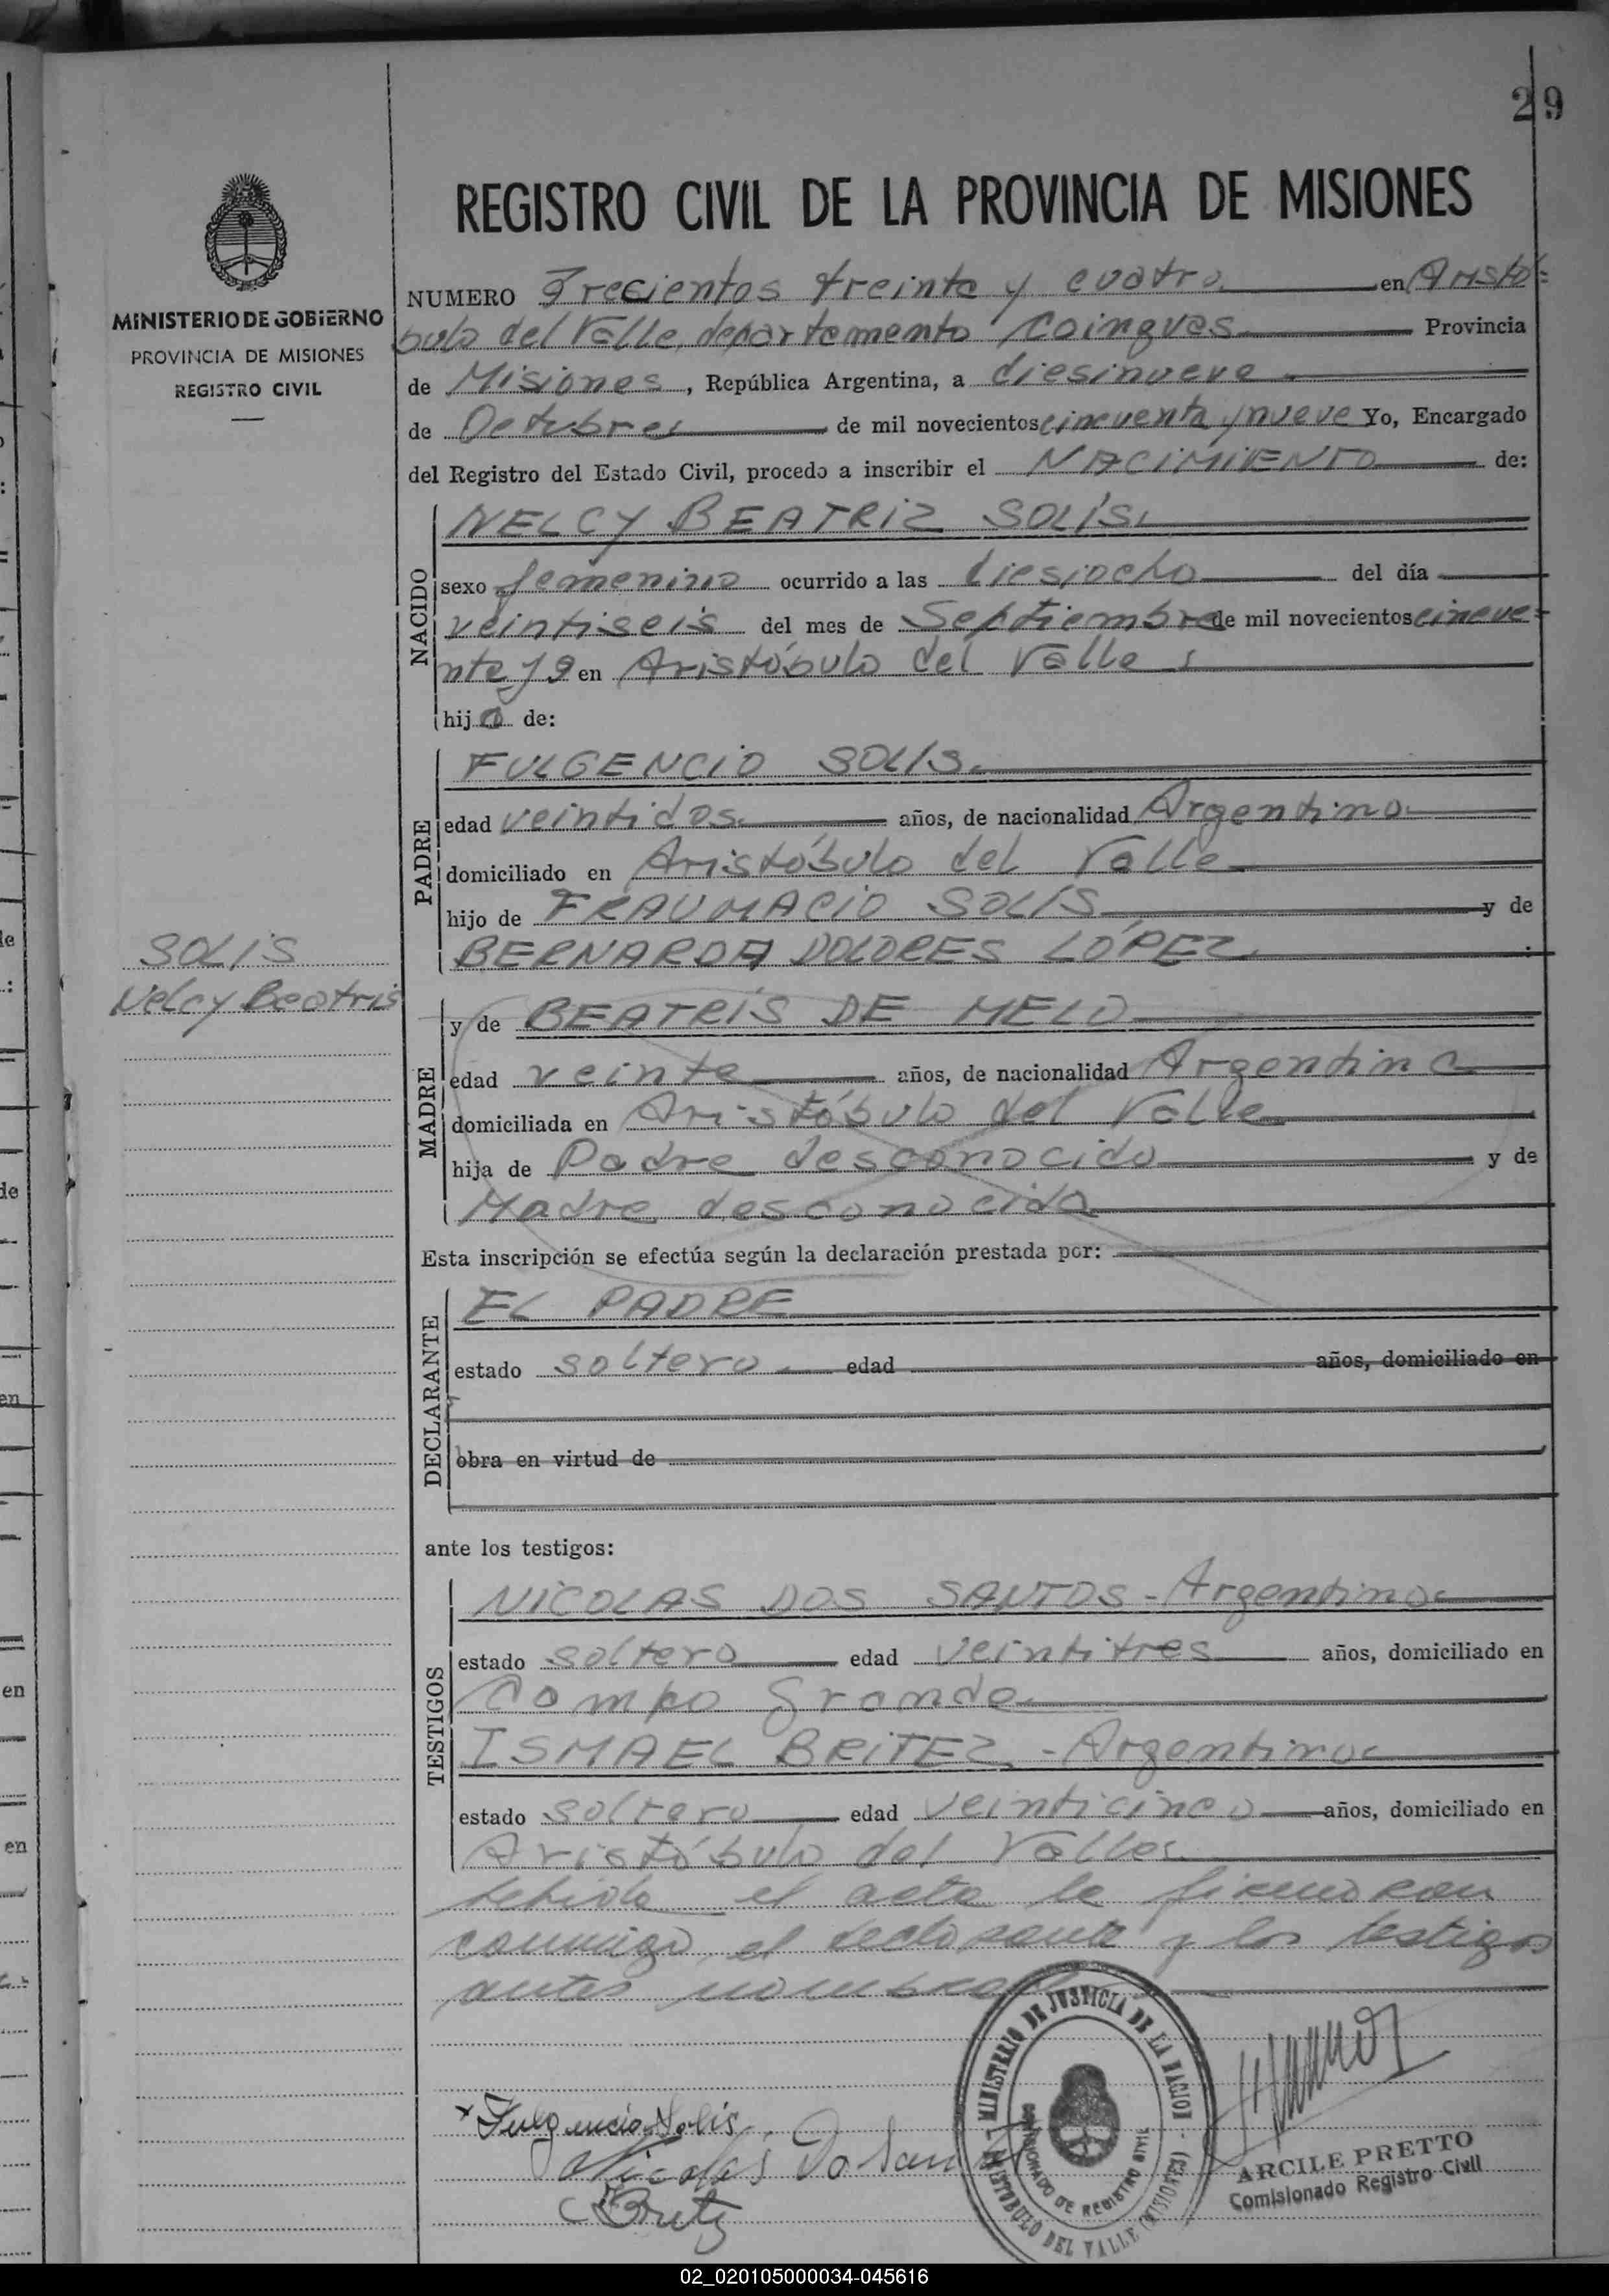 29
MINISTERIO DE GOBIERNO
PROVINCIA DE MISIONES
REGISTRO CIVIL
REGISTRO CIVIL DE LA PROVINCIA DE MISIONES
NUMERO Trecientos treinta y cuatro en Aristó=
bulo del Valle, departamento Caingues Provincia
de Misiones, República Argentina, a diesinueve
de Octubre de mil novecientos cincuenta y nueve Yo, Encargado
del Registro del Estado Civil, procedo a inscribir el NACIMIENTO de:
NACIDO
NELCY BEATRIZ SOLÍS.
sexo femenino ocurrido a las diesiocho del día
veintiseis del mes de Septiembre de mil novecientos cincue=
nta y 9 en Aristóbulo del Valle
hija de:
PADRE
FULGENCIO SOLIS.
edad veintidos años, de nacionalidad Argentino
domiciliado en Aristóbulo del Valle
hijo de FRAUMACIO SOLÍS y de
BERNARDA DOLORES LÓPEZ
SOLIS
Nelcy Beatris
MADRE
y de BEATRÍS DE MELO
edad veinte años, de nacionalidad Argentina
domiciliada en Aristóbulo del Valle
hija de Padre desconocido y de
Madre desconocida
Esta inscripción se efectúa según la declaración prestada por:
DECLARANTE
EL PADRE
estado soltero edad años, domiciliado en
obra en virtud de
ante los testigos:
TESTIGOS
NICOLAS DOS SANTOS - Argentino
estado soltero edad veintitres años, domiciliado en
Campo Grande
ISMAEL BRITEZ. - Argentino
estado soltero edad veinticinco años, domiciliado en
Aristóbulo del Valle
el acta la firmaron
conmigo, el declarante y los testigos
antes nombrados
MINISTERIO DE JUSTICIA DE LA NACION
COMISIONADO DE REGISTRO CIVIL
ARISTOBULO DEL VALLE (MISIONES)
x Fulgencio Solis
Nicolas Do San
Britz
ARCILE PRETTO
Comisionado Registro Civil
02_020105000034-045616